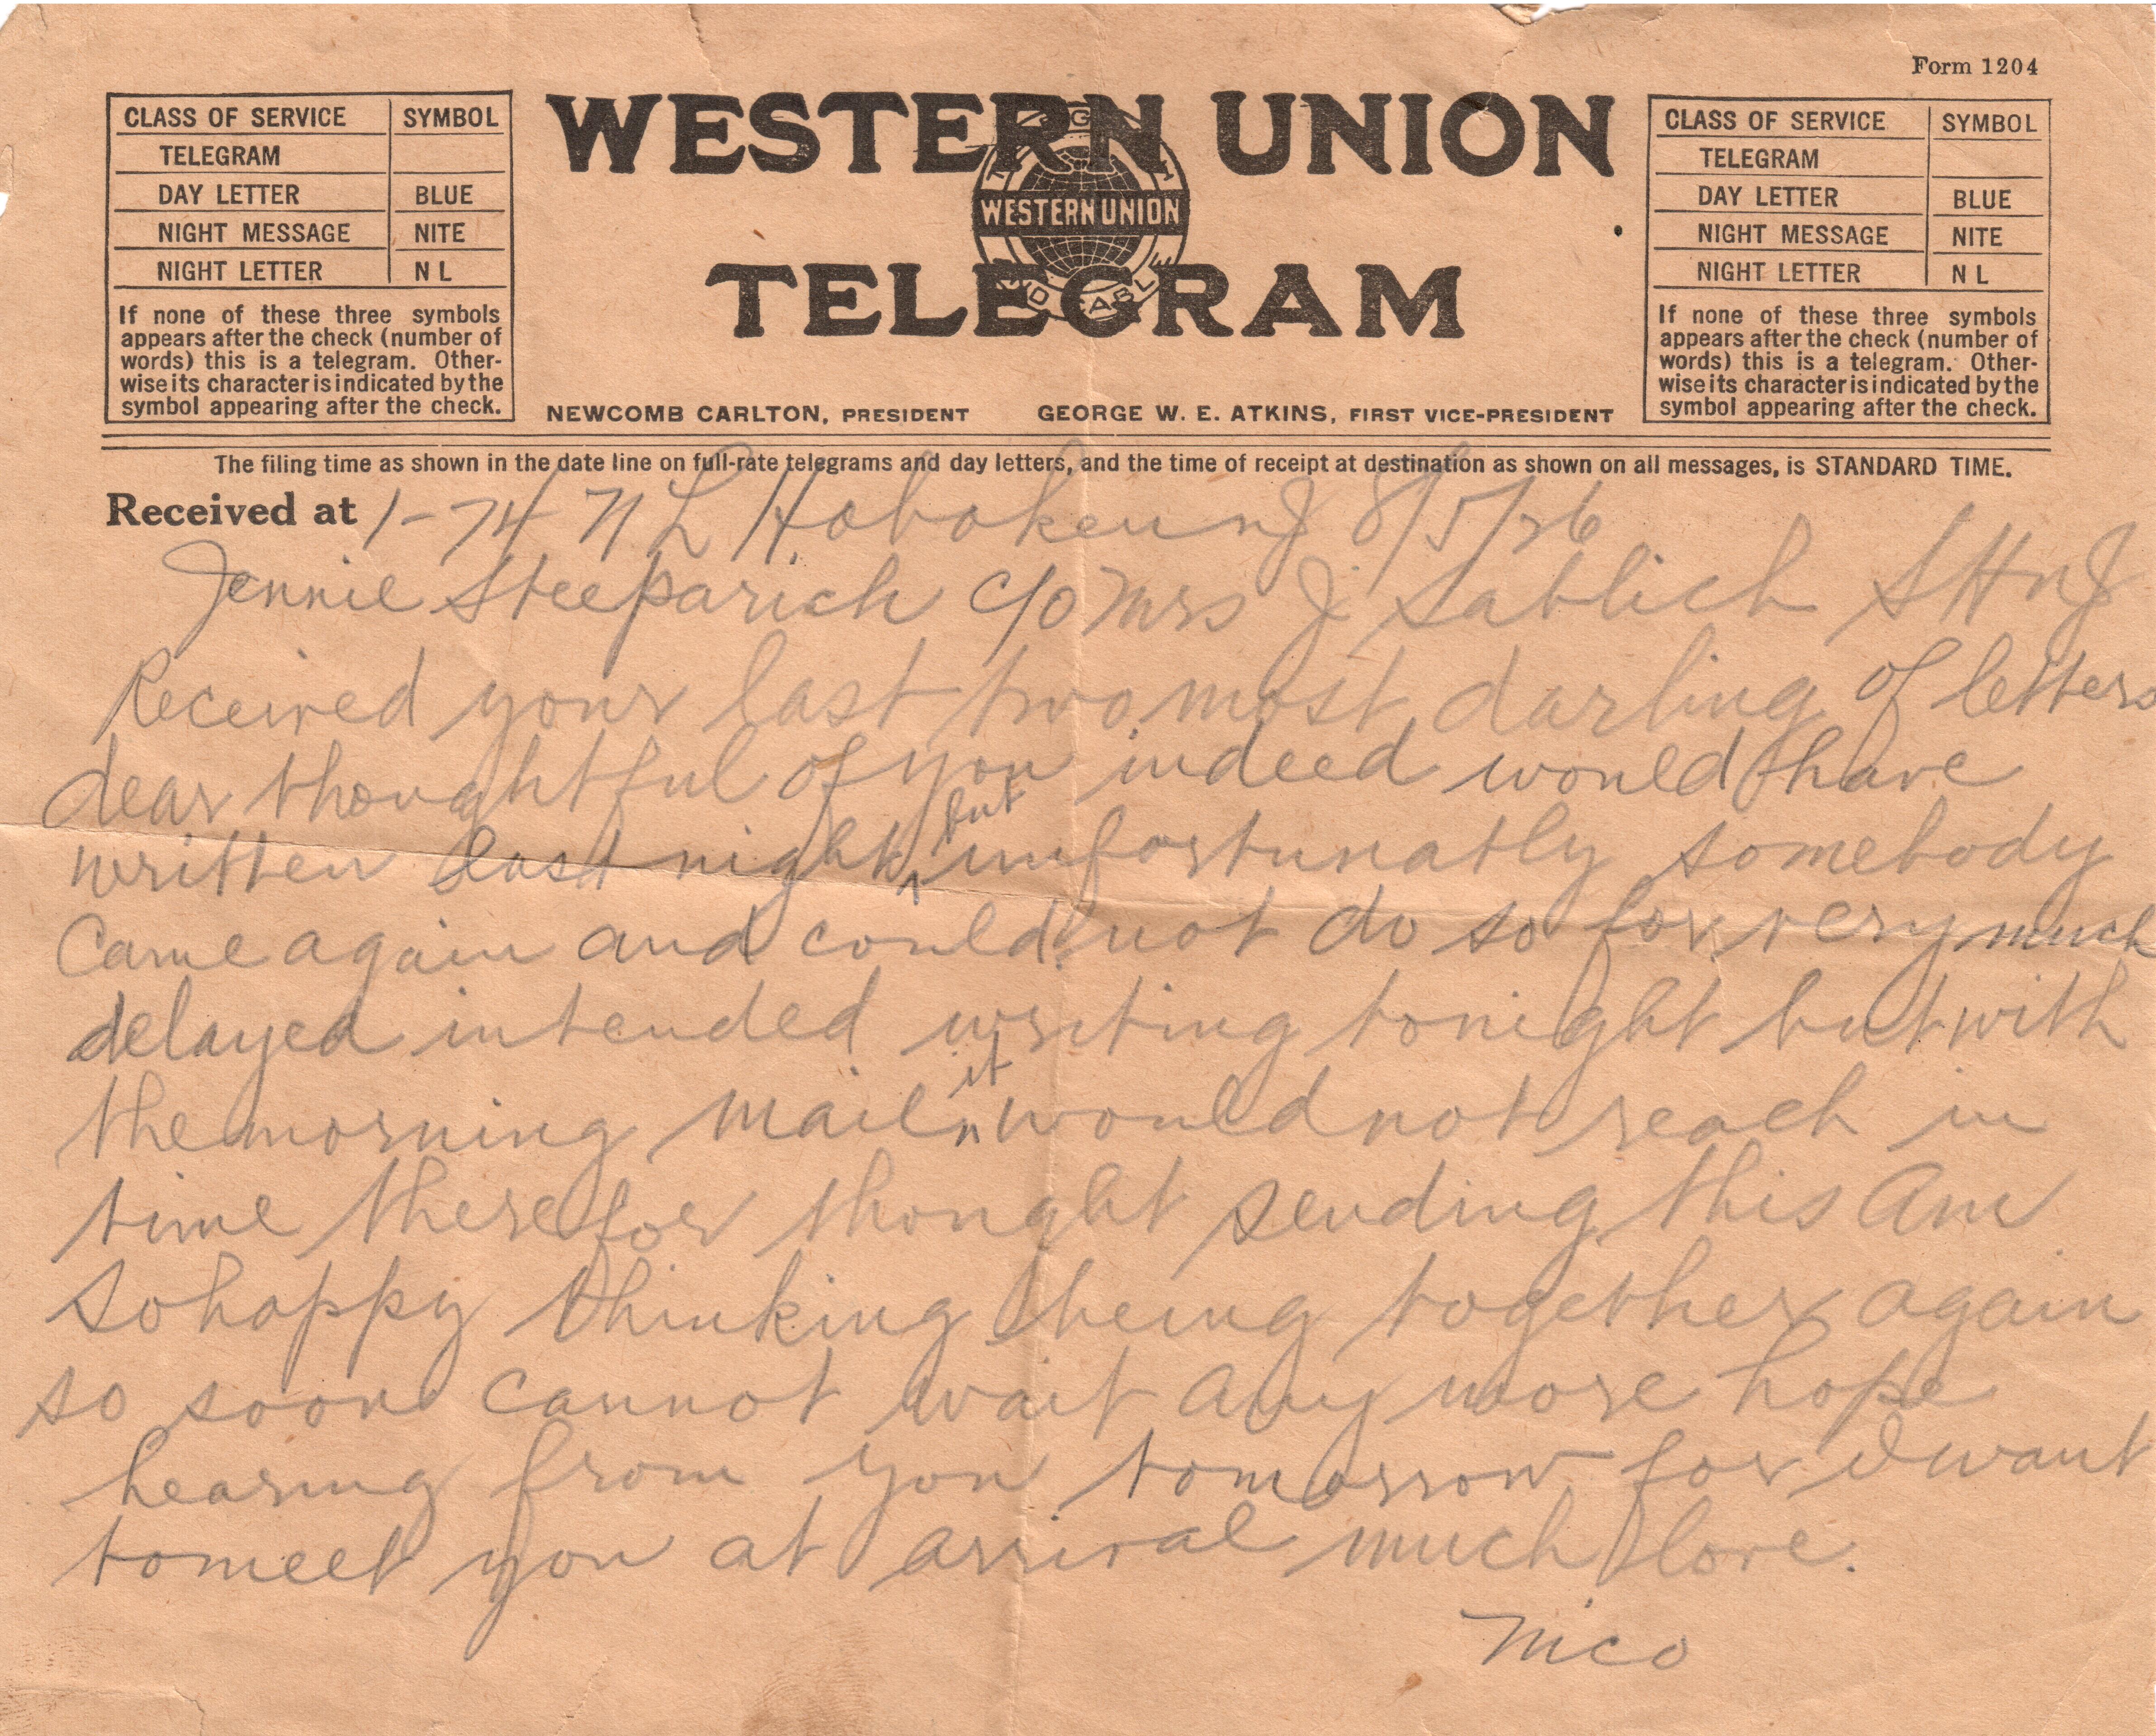 Form 1204
CLASS OF SERVICE SYMBOL
TELEGRAM
DAY LETTER BLUE
NIGHT MESSAGE NITE
NIGHT LETTER N L
If none of these three symbols
appears after the check (number of
words) this is a telegram. Other-
wise its character is indicated by the
symbol appearing after the check.
WESTERN UNION
WESTERN UNION
TELEGRAM
NEWCOMB CARLTON, PRESIDENT GEORGE W. E. ATKINS, FIRST VICE-PRESIDENT
CLASS OF SERVICE SYMBOL
TELEGRAM
DAY LETTER BLUE
NIGHT MESSAGE NITE
NIGHT LETTER N L
If none of these three symbols
appears after the check (number of
words) this is a telegram. Other-
wise its character is indicated by the
symbol appearing after the check.
The filing time as shown in the date line on full-rate telegrams and day letters, and the time of receipt at destination as shown on all messages, is STANDARD TIME.
Received at 1-74 NL Hoboken NJ 8/5/26
Jennie Steeparich c/o Mrs J Sablich SHNJ
Received your last two most darling of letters
dear thoughtful of you indeed would have
written last night but unfortunatly somebody
Came again and could not do so for very much
delayed intended writing tonight but with
the morning mail it would not reach in
time therefor thought sending this Am
so happy thinking being together again
so soon cannot wait any more hope
hearing from you tomorrow for I want
to meet you at arrival much love.
Nico